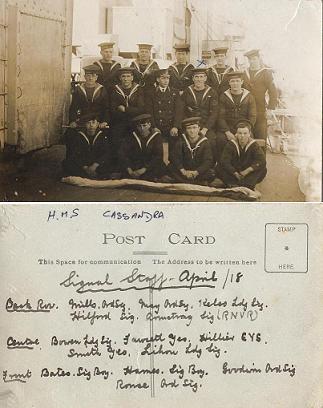 H.M.S CASSANDRA
POST CARD
STAMP
HERE
This Space for communication The Address to be written here
Signal Staff - April /18
Back Row. Mills. OrdSig. May OrdSig. Ldg Sig.
Hilford Sig. Armstrag Sig (RNVR)
Centre. Bowen Ldg Sig. Fawcett Yeo, Hillier CYS.
Smith Yeo, Ldg Sig.
Front Bates. Sig Boy. Hames. Sig Boy. Goodwin Ord Sig
Rouse Ord Sig.